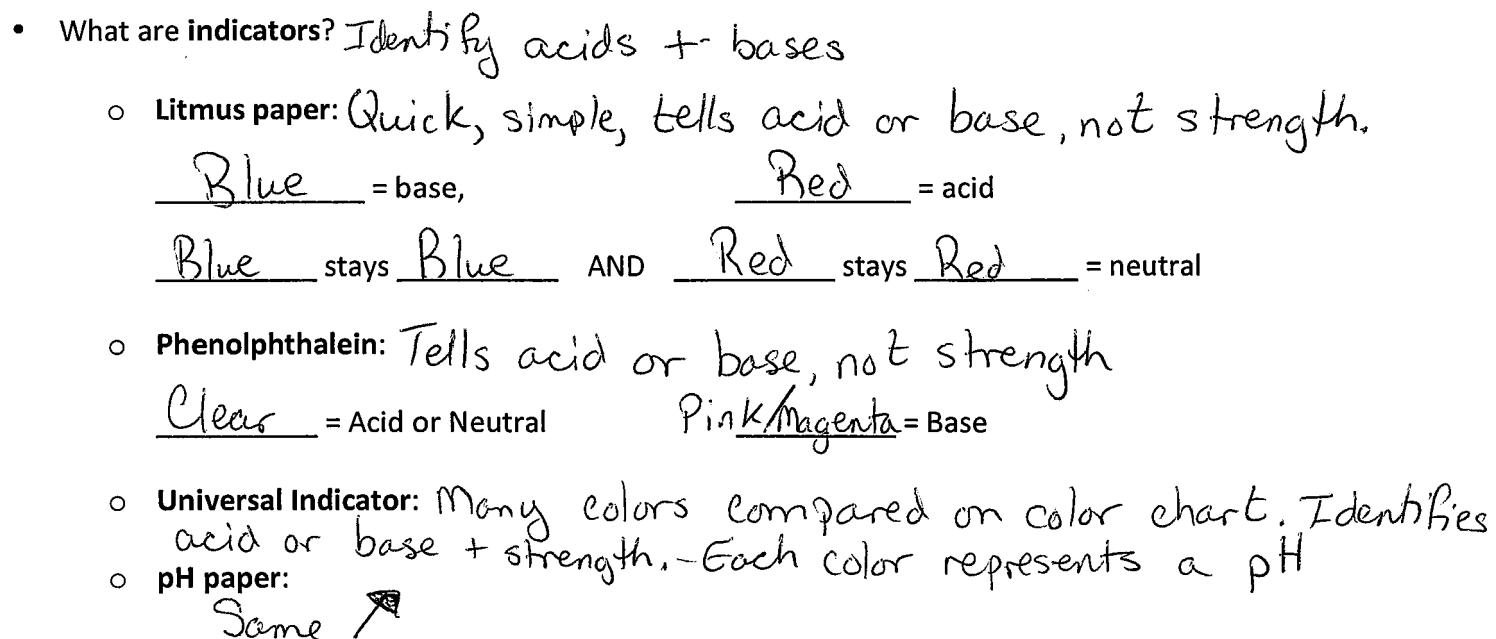 • What are indicators? Identify acids + bases
o Litmus paper: Quick, simple, tells acid or base, not strength.
Blue = base, Red = acid
Blue stays Blue AND Red stays Red = neutral
o Phenolphthalein: Tells acid or base, not strength
Clear = Acid or Neutral Pink/Magenta = Base
o Universal Indicator: Many colors compared on color chart. Identifies
acid or base + strength. - Each color represents a pH
o pH paper:
Same